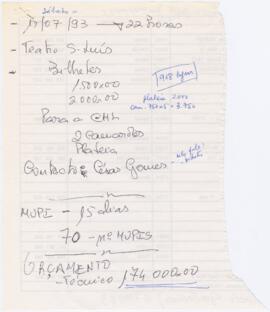 Sábado
- 17/07/93 → 22 horas
- Teatro S. Luís
- Bilhetes
1500$00
2000$00
918 lugares
plateia 2000
cam. 750x5 = 3.750
Para a CML
2 Camarotes
Plateia
Contacto: César Gomes
MUPI - 15 dias
70 - nº MUPIS
ORÇAMENTO
- Técnico 174 000$00